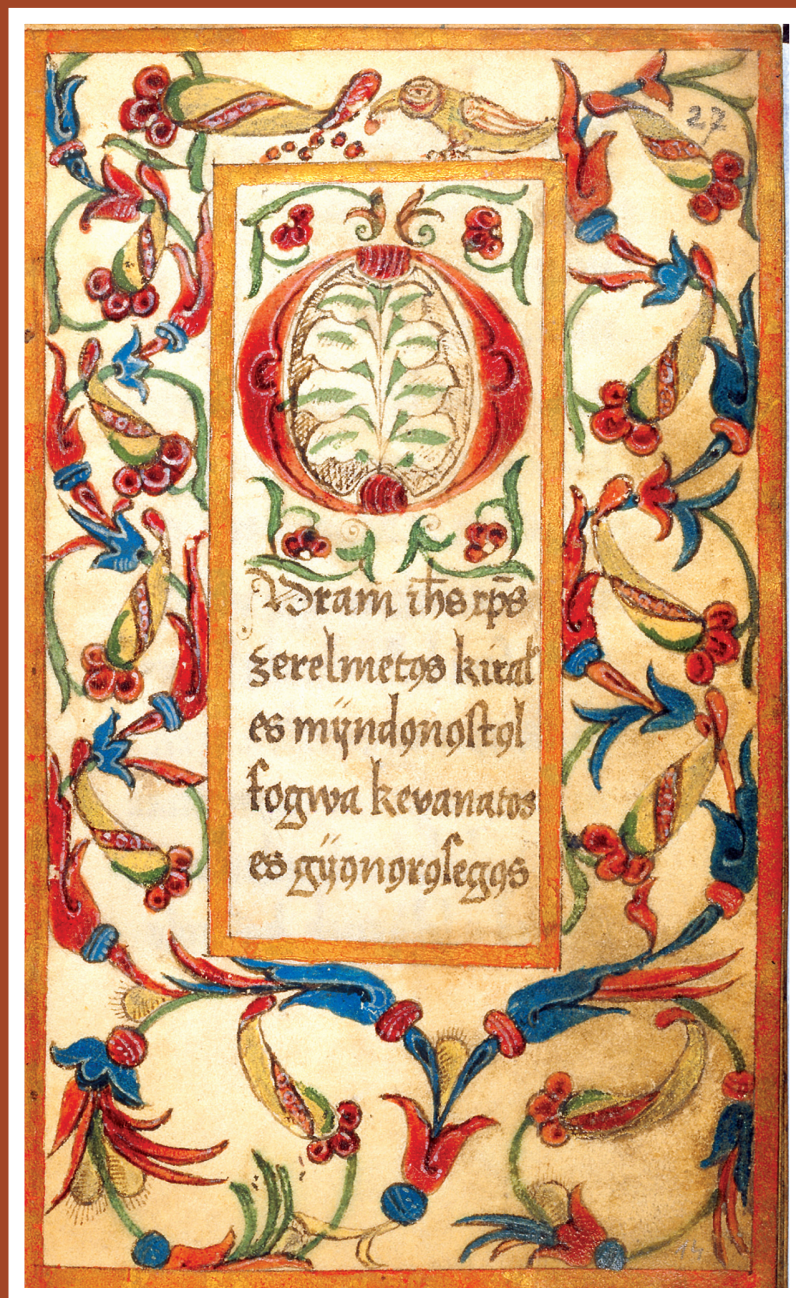 27
O
Vram ih̄s xp̄s
zerelmetǫs kiral
es mÿndǫnǫſtǫl
fogwa kevanatos
es gÿǫnǫrǫſegǫs